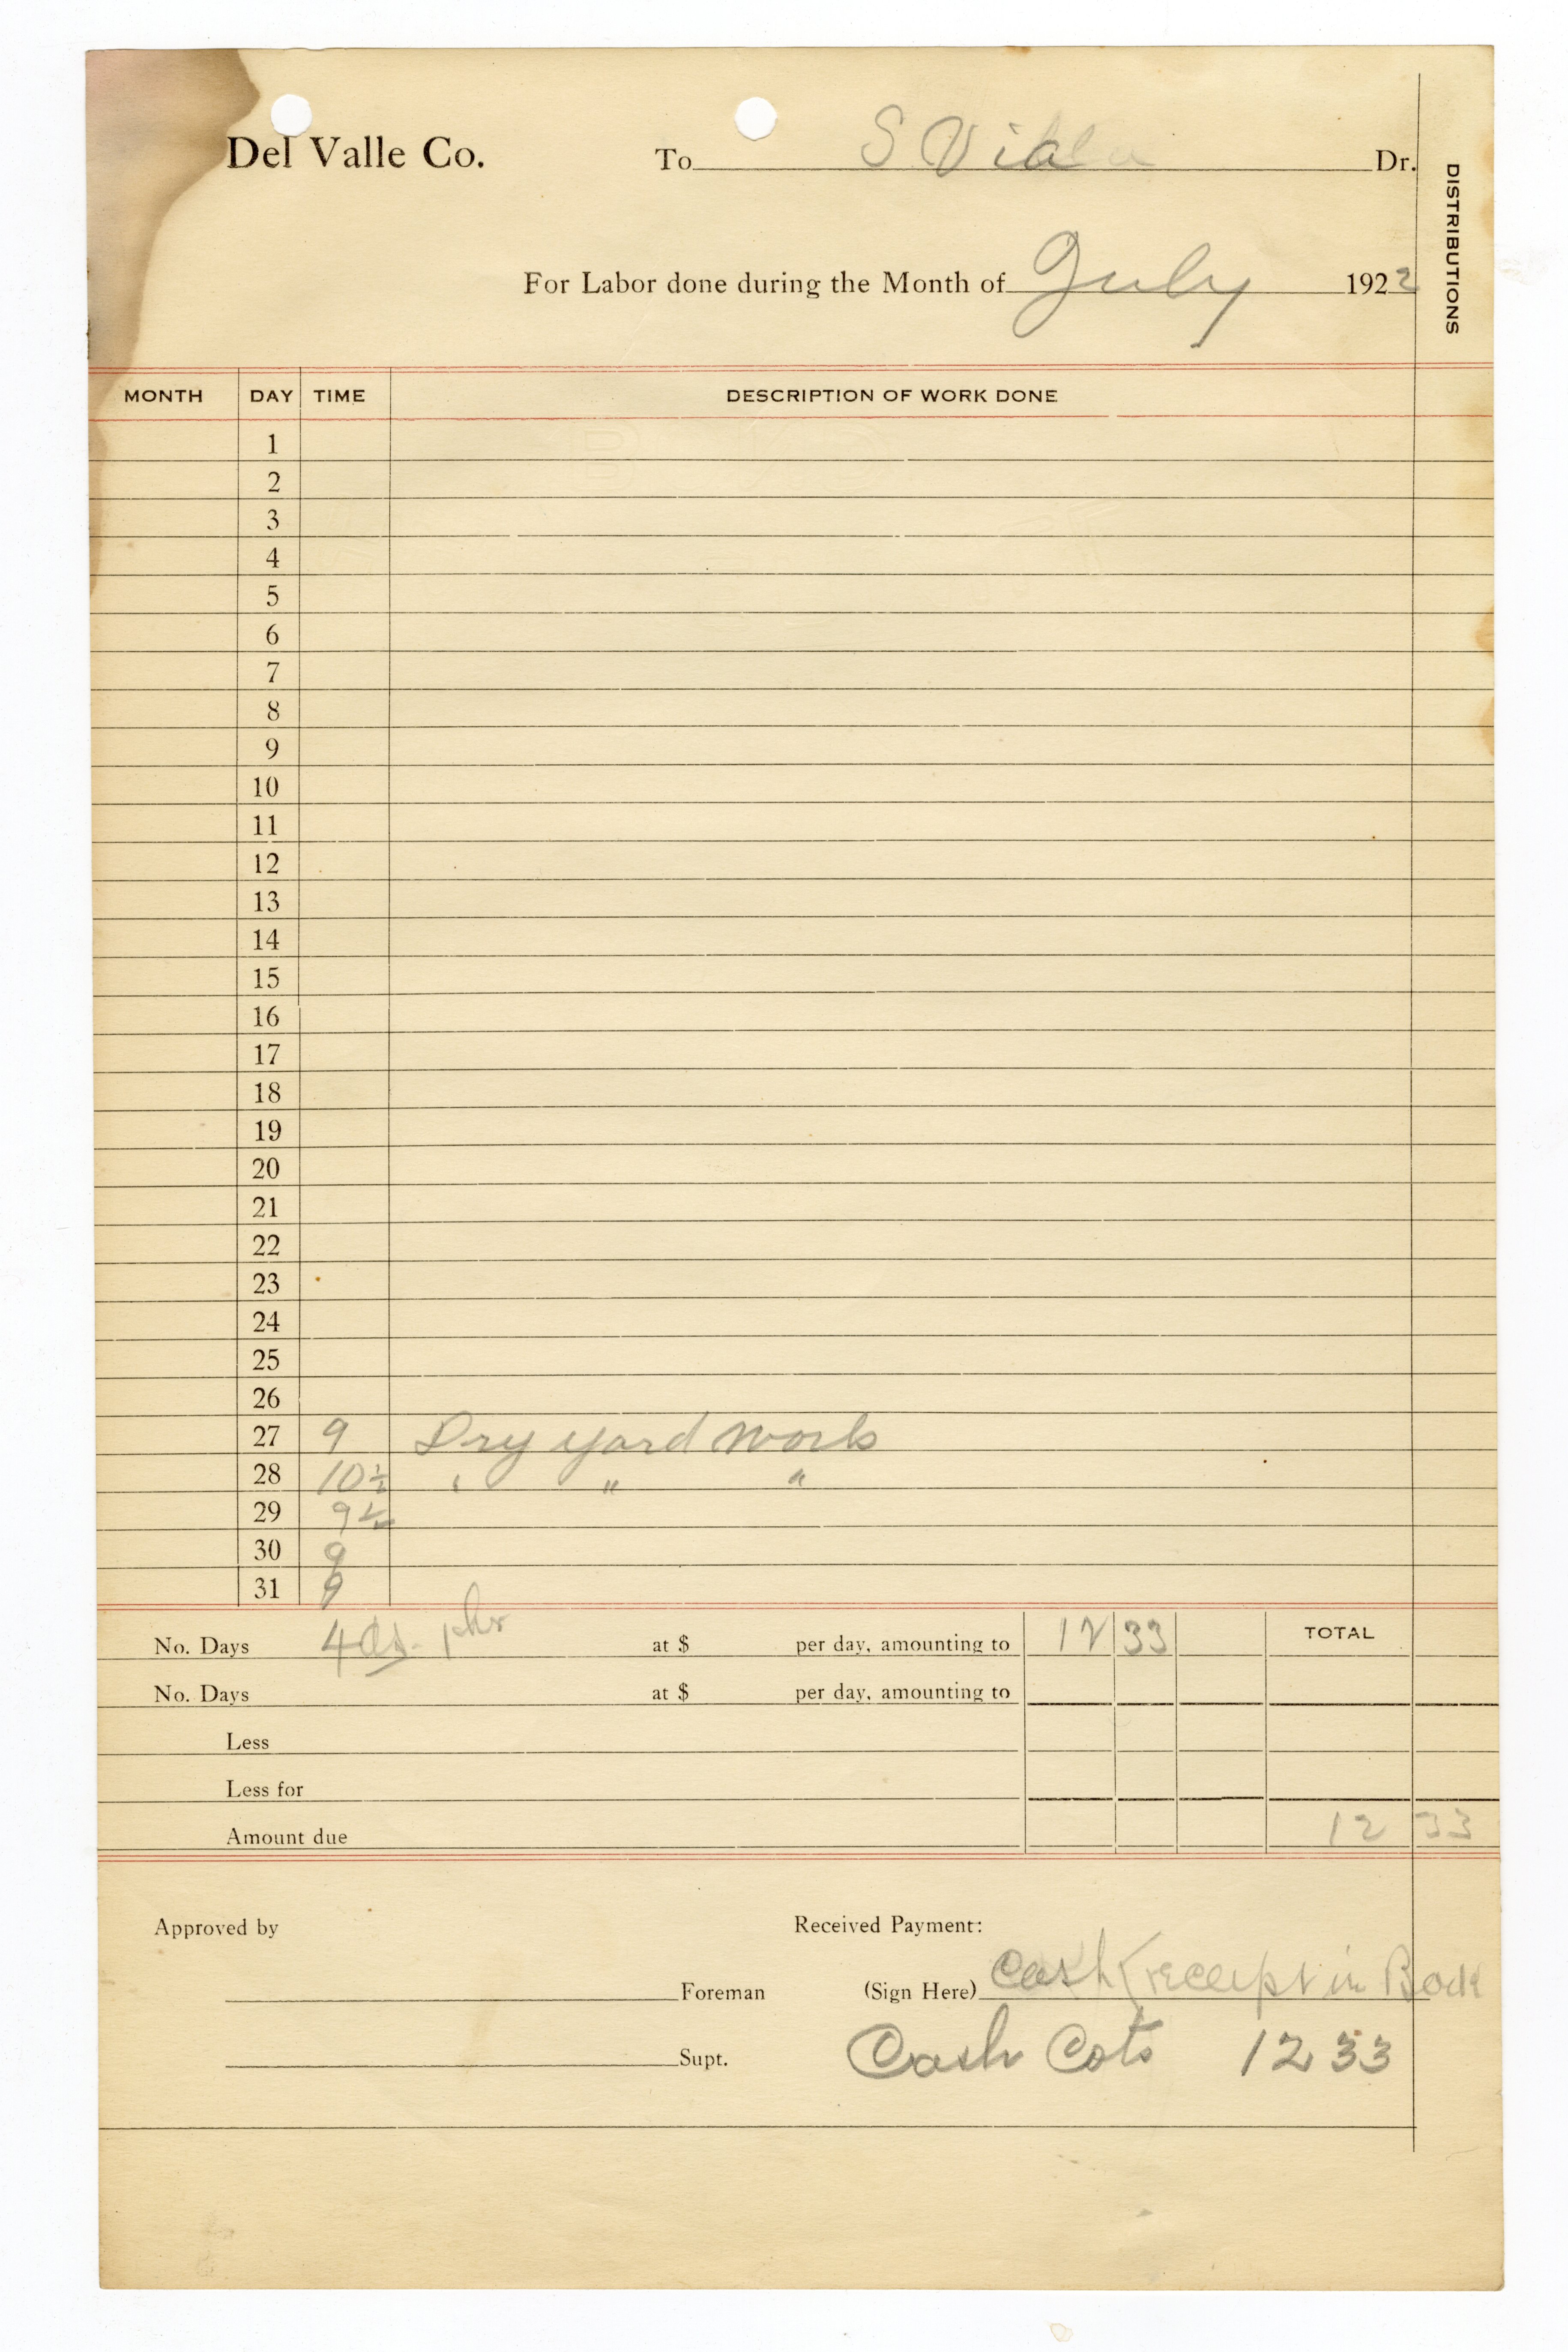 Del Valle Co.
To S Dr.
For Labor done during the Month of July 1922
DISTRIBUTIONS
MONTH DAY TIME DESCRIPTION OF WORK DONE
1
2
3
4
5
6
7
8
9
10
11
12
13
14
15
16
17
18
19
20
21
22
23
24
25
26
27 9 Dry yard work
28 10½ " " "
29 9½
30 9
31 9
No. Days 4 ds. 1 hr at $ per day, amounting to 12 33 TOTAL
No. Days at $ per day, amounting to
Less
Less for
Amount due 12 33
Approved by Received Payment:
Foreman (Sign Here) Cash receipt in Book
Supt. Cash Cots 12 33